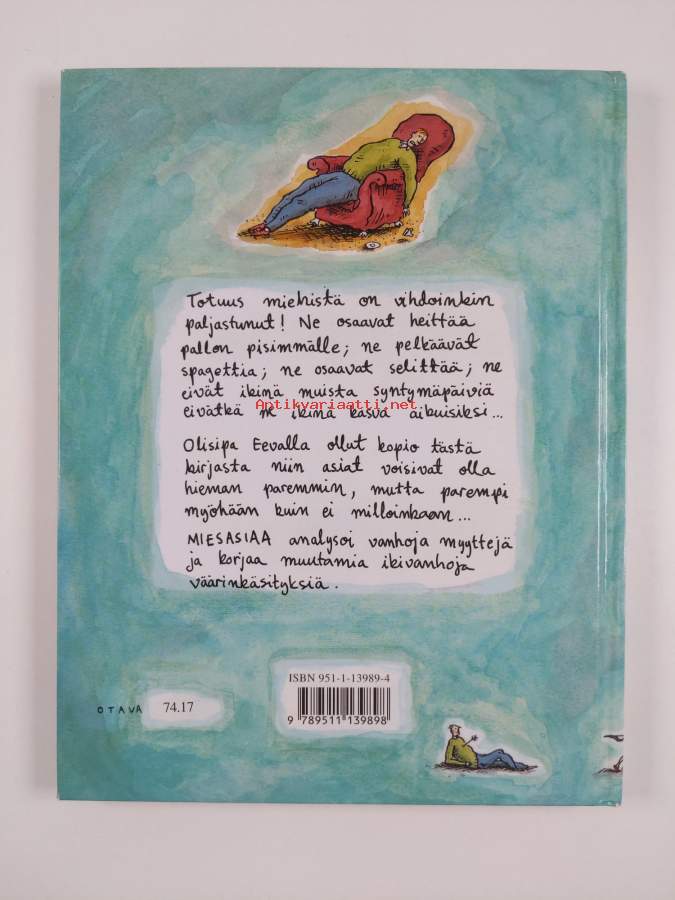 Totuus miehistä on vihdoinkin
paljastunut! Ne osaavat heittää
pallon pisimmälle; ne pelkäävät
spagettia; ne osaavat selittää; ne
eivät ikinä muista syntymäpäiviä
eivätkä ikinä kasva aikuisiksi...
Antikvariaatti.net
Olisipa Eevalla ollut kopio tästä
kirjasta niin asiat voisivat olla
hieman paremmin, mutta parempi
myöhään kuin ei milloinkaan...
MIESASIAA analysoi vanhoja myyttejä
ja korjaa muutamia ikivanhoja
väärinkäsityksiä.
ISBN 951-1-13989-4
OTAVA 74.17
9 789511 139898